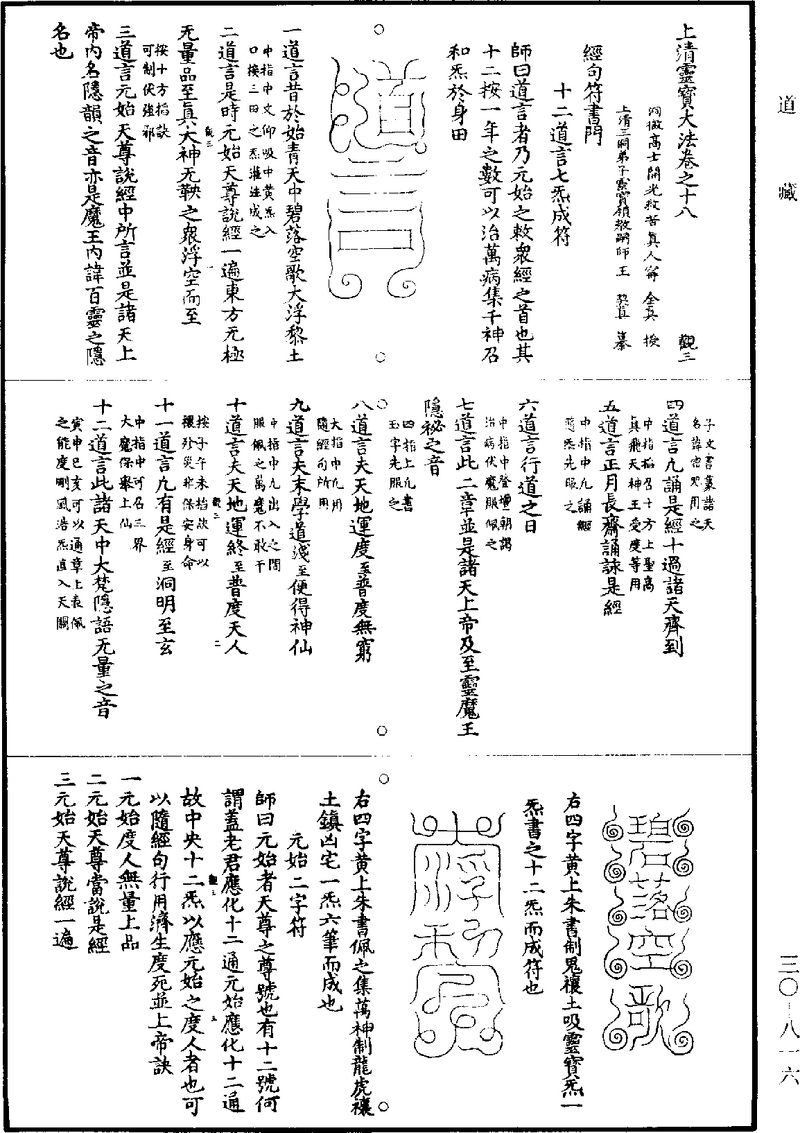 道藏
三〇-八一六
上清靈寶大法卷之十八
觀三
洞微高士開光救苦真人甯全真授
上清三洞弟子靈寶領教嗣師王契真纂
經句符書門
十二道言七炁成符
師曰道言者乃元始之敕眾經之首也其
十二按一年之數可以治萬病集千神召
和炁於身田
道言
一道言昔於始青天中碧落空歌大浮黎土
中指中文仰吸中黃炁入
口接三田之炁灌注成之
二道言是時元始天尊說經一遍東方无極
觀三
无量品至真大神无鞅之眾浮空而至
按十方指訣
可制伏強邪
三道言元始天尊說經中所言並是諸天上
帝內名隱韻之音亦是魔王內諱百靈之隱
名也
子文書篆諸天
名諱皆咒用之
四道言凡誦是經十過諸天齊到
中指掐召十方上聖高
真飛天神王受度等用
五道言正月長齋誦詠是經
中指中凡誦經
隨炁先服之
六道言行道之日
中指中登壇朝謁
治病伏魔服佩之
七道言此二章並是諸天上帝及至靈魔王
隱秘之音
四指上凡書
玉字先服之
八道言夫天地運度至普度無窮
大指中凡用
隨經句所用
九道言夫末學道淺至便得神仙
中指中凡出入之間
服佩之萬魔不敢干
十道言夫天地運終至普度天人
觀三
二
按子午未掐訣可以
禳外災非保安身命
十一道言凡有是經至洞明至玄
中指中可召三界
大魔保舉上仙
十二道言此諸天中大梵隱語无量之音
寅申巳亥可以通章上表佩
之能度剛風浩炁直入天關
碧落空歌
右四字黃上朱書制鬼禳土吸靈寶炁一
炁書之十二炁而成符也
大浮黎土
右四字黃上朱書佩之集萬神制龍虎禳
土鎮凶宅一炁六筆而成也
元始二字符
師曰元始者天尊之尊號也有十二號何
謂蓋老君應化十二通元始應化十二通
觀三
三
故中央十二炁以應元始之度人者也可
以隨經句行用濟生度死並上帝訣
一元始度人無量上品
二元始天尊當說是經
三元始天尊說經一遍